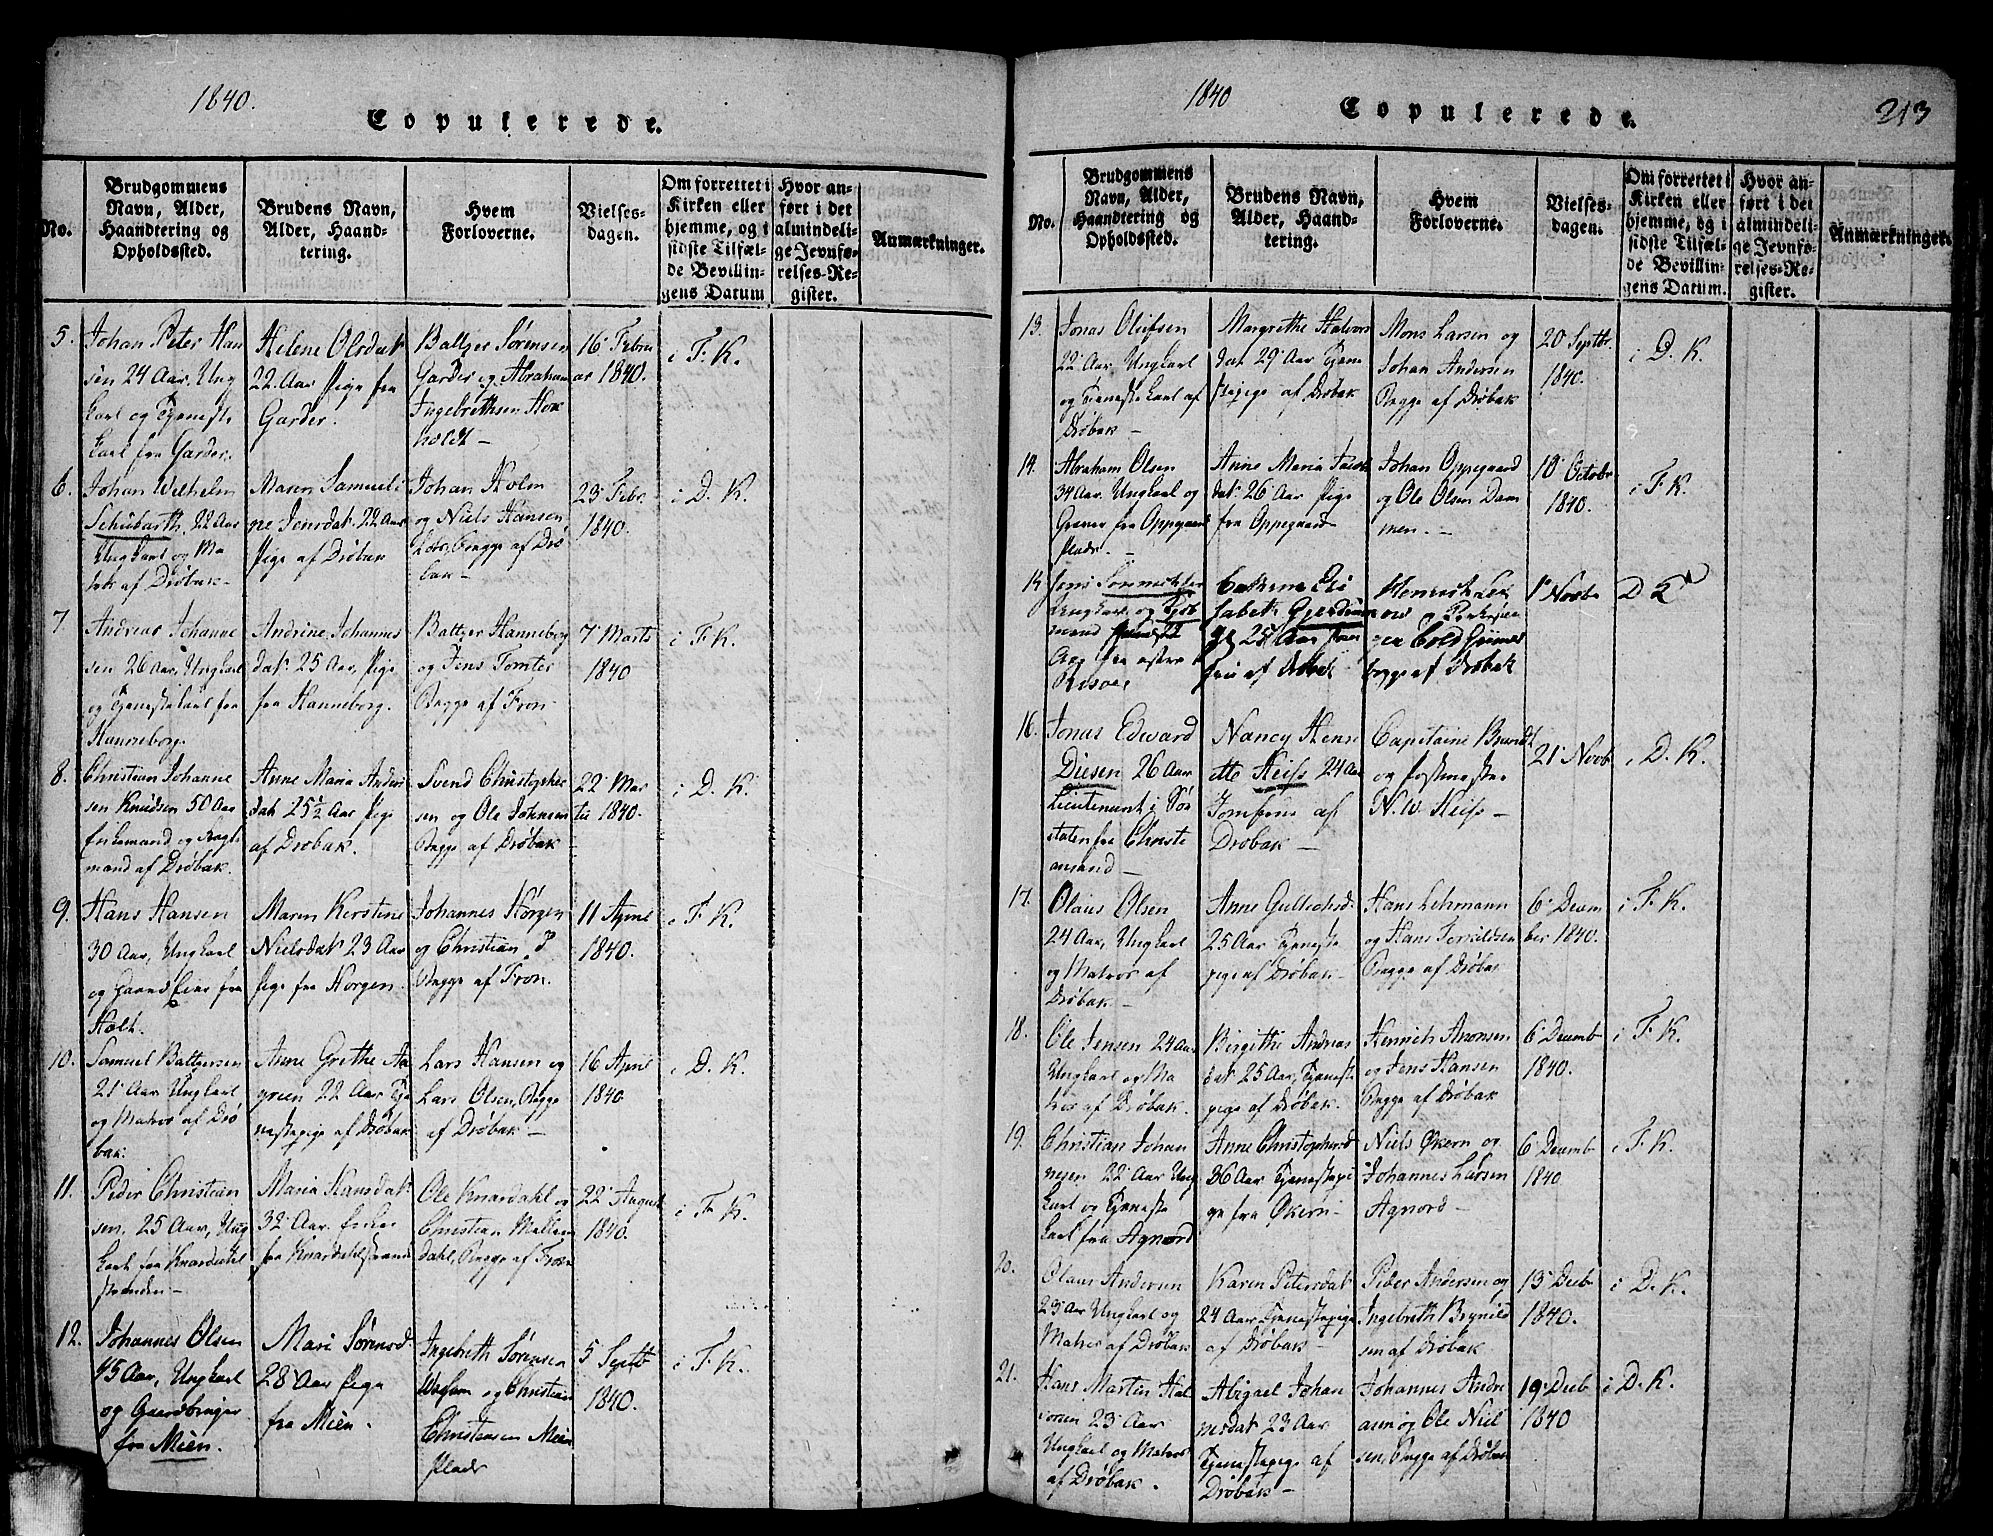 1840.
Copulerede.
No.
Brudgommens
Navn, Alder,
Haandtering og
Opholdssted.
Brudens Navn,
Alder, Haand-
tering.
Hvem
Forloverne.
Vielses-
dagen.
Om forrettet i
Kirken eller
hjemme, og i
sidste Tilfæl-
de Bevillin-
gens Datum
Hvor an-
ført i det
almindeli-
ge Jevnfø-
relses-Re-
gister.
Anmærkninger.
5.
Johan Peter Han
sen 24 Aar, Ung
karl og Tjeneste
karl fra Garder.
Helene Olsdat
22. Aar Pige fra
Garder.
Baltzer Sørensen
Garder og Abraham
Ingebrethsen Hok
holdt
16 Febru
ar 1840.
i F. K.
6.
Johan Wilhelm
Schubarth, 22 Aar
Ungkarl og Ma
af Drøbak
Maren Samueli
ne Jensdat. 22 Aar
Pige af Drøbak
Johan Holm
og Niels Hansen
Begge af Drø
bak
23 Febr.
1840.
i D. K.
7
Andreas Johanne
sen 26 Aar, Ungkarl
og Tjenestekarl fra
Hanneborg.
Andrine Johannes
dat: 25 Aar, Pige
fra Hanneborg.
Baltzer Hanneborg
og Jens Tomter
Begge af Fron
7 Marts
1840
i F. K.
8.
Christian Johanne
sen Knudsen 50 Aar
mand af Drøbak.
Anne Maria Anders
dat 25½ Aar Pige
af Drøbak.
Svend Christopher
sen og Ole Johnsen
Begge af Drøbak
22 Mar
tii 1840.
i D. K.
9.
Hans Hansen
30 Aar, Ungkarl
og fra
Holt.
Maren Kerstine
Nielsdat 23 Aar
Pige fra Horgen.
Johannes Hörgen
og Christian
Begge af Fron.
11 April
1840.
i F. K.
10.
Samuel Baltzersen
21 Aar Ungkarl
og Matros af Drø
bak.
Anne Grethe Aa
green 22 Aar Tje
nestepige af Drøbak
Lars Hansen og
Lars Olsen, Begge
af Drøbak
16 April
1840
i D. K.
11.
Peder Christian
sen. 25 Aar, Ung
karl fra Knardahl
stranden
Maria Hansdat
32 Aar.
fra Knardahlstrand
Ole Knardahl og
Christian Mellem
dahl, Begge af Fron
22 August
1840.
i F. K.
12.
Johannes Olsen
45 Aar, Ungkarl
og Gaardbruger
fra Mien.
Mari Sørensd.
28 Aar Pige
fra Mien.
Ingebreth Sørensen
og Christian
Christensen Mien
Plads
5 Septb
1840.
i F. K.
1840
Copulerede.
213
No.
Brudgommens
Navn, Alder,
Haandtering og
Opholdsted.
Brudens Navn,
Alder, Haand-
tering.
Hvem
Forloverne.
Vielses-
dagen.
Om forrettet i
Kirken eller
hjemme, og i
sidste Tilfæl-
de Bevillin-
gens Datum.
Hvor an-
ført i det
almindeli-
ge Jevnfø-
relses-Re-
gister.
Anmærkninger.
13.
Jonas Olufsen
22 Aar, Ungkarl
og Tjenestekarl af
Drøbak
Margrethe Halvors
dat 29 Aar Tjene
stepige af Drøbak
Mons Larsen og
Johan Andersen
Begge af Drøbak
20 Septbr.
1840.
i D. K.
14.
Abraham Olsen
34 Aar. Ungkarl og
Graver fra Oppegaard
Plads.
Anne Maria
dat: 26 Aar Pige
fra Oppegaard
Johan Oppegaard
og Ole Olsen Dam
men.
10 Octobr
1840.
i F. K.
Jens
Ungkarl og
mand
Aar fra østre
Risöer
Cathrine Eli
sabeth
25 Aar
af Drøbak
Henrich
og
begge af Drøbak
1 Novbr
D K
16.
Jonas Edward
Diesen 26 Aar
Lieutenant i Søe
taten fra Christi
ansand
Nancy Henri
ette Heiss 24 Aar
Jomfrue af
Drøbak
Capitaine Brandt
og Postmester
N. W. Heiss
21 Novb
i D. K.
17.
Olaus Olsen
24 Aar, Ungkarl
og Matros af
Drøbak
Anne Gulbrandsd.
25 Aar Tjeneste
pige af Drøbak
Hans Lehmann
og Hans
Begge af Drøbak
6 Decem
ber 1840.
i F. K.
18.
Ole Jensen 24 Aar
Ungkarl og Ma
tros af Drøbak.
Birgithe Andreas
dat 25 Aar, Tjeneste
pige af Drøbak.
Henrich Aronsen
og Jens Hansen
Begge af Drøbak
6 Decemb
1840.
i F. K.
19.
Christian Johan
nesen 22 Aar Ung
karl og Tjeneste
karl fra Agnord
Anne Christophersd
36 Aar Tjenestepi
ge fra Økern
Niels Økern og
Johannes Larsen
Agnord
6 Decemb
1840
i F. K.
20.
Olaus Andersen
23 Aar Ungkarl og
Matros af Drøbak
Karen Petersdat
24 Aar Tjenestepige
af Drøbak
Peder Andersen og
Ingebreth Brynild
sen af Drøbak
13 Decb
1840.
i D. K.
21.
Hans Martin Hal
vorsen 23 Aar
Ungkarl og Matros
af Drøbak.
Abigael Johan
nesdat 23 Aar
Tjenestepige af
Drøbak
Johannes Andre
asen og Ole Niel
sen, Begge af Drøbak
19 Decb
1840
i D. K.